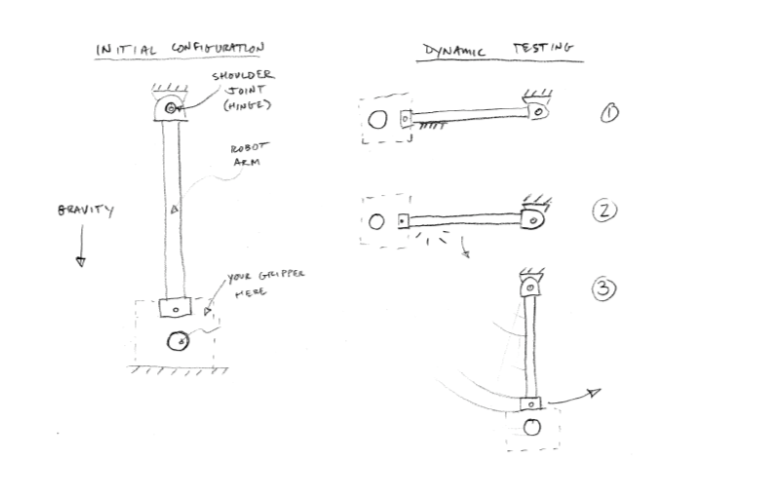 INITIAL CONFIGURATION
SHOULDER
JOINT
(HINGE)
ROBOT
ARM
GRAVITY
YOUR GRIPPER
HERE
DYNAMIC TESTING
1
2
3